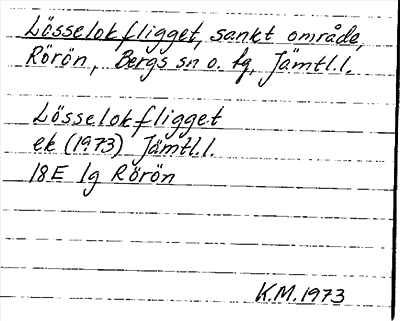 Lösselokfligget, sankt område,
Rörön, Bergs sn o. tg, Jämtl.l.
Lösselokfligget
ek (1973) Jämtl.l.
18E 1g Rörön
K.M. 1973